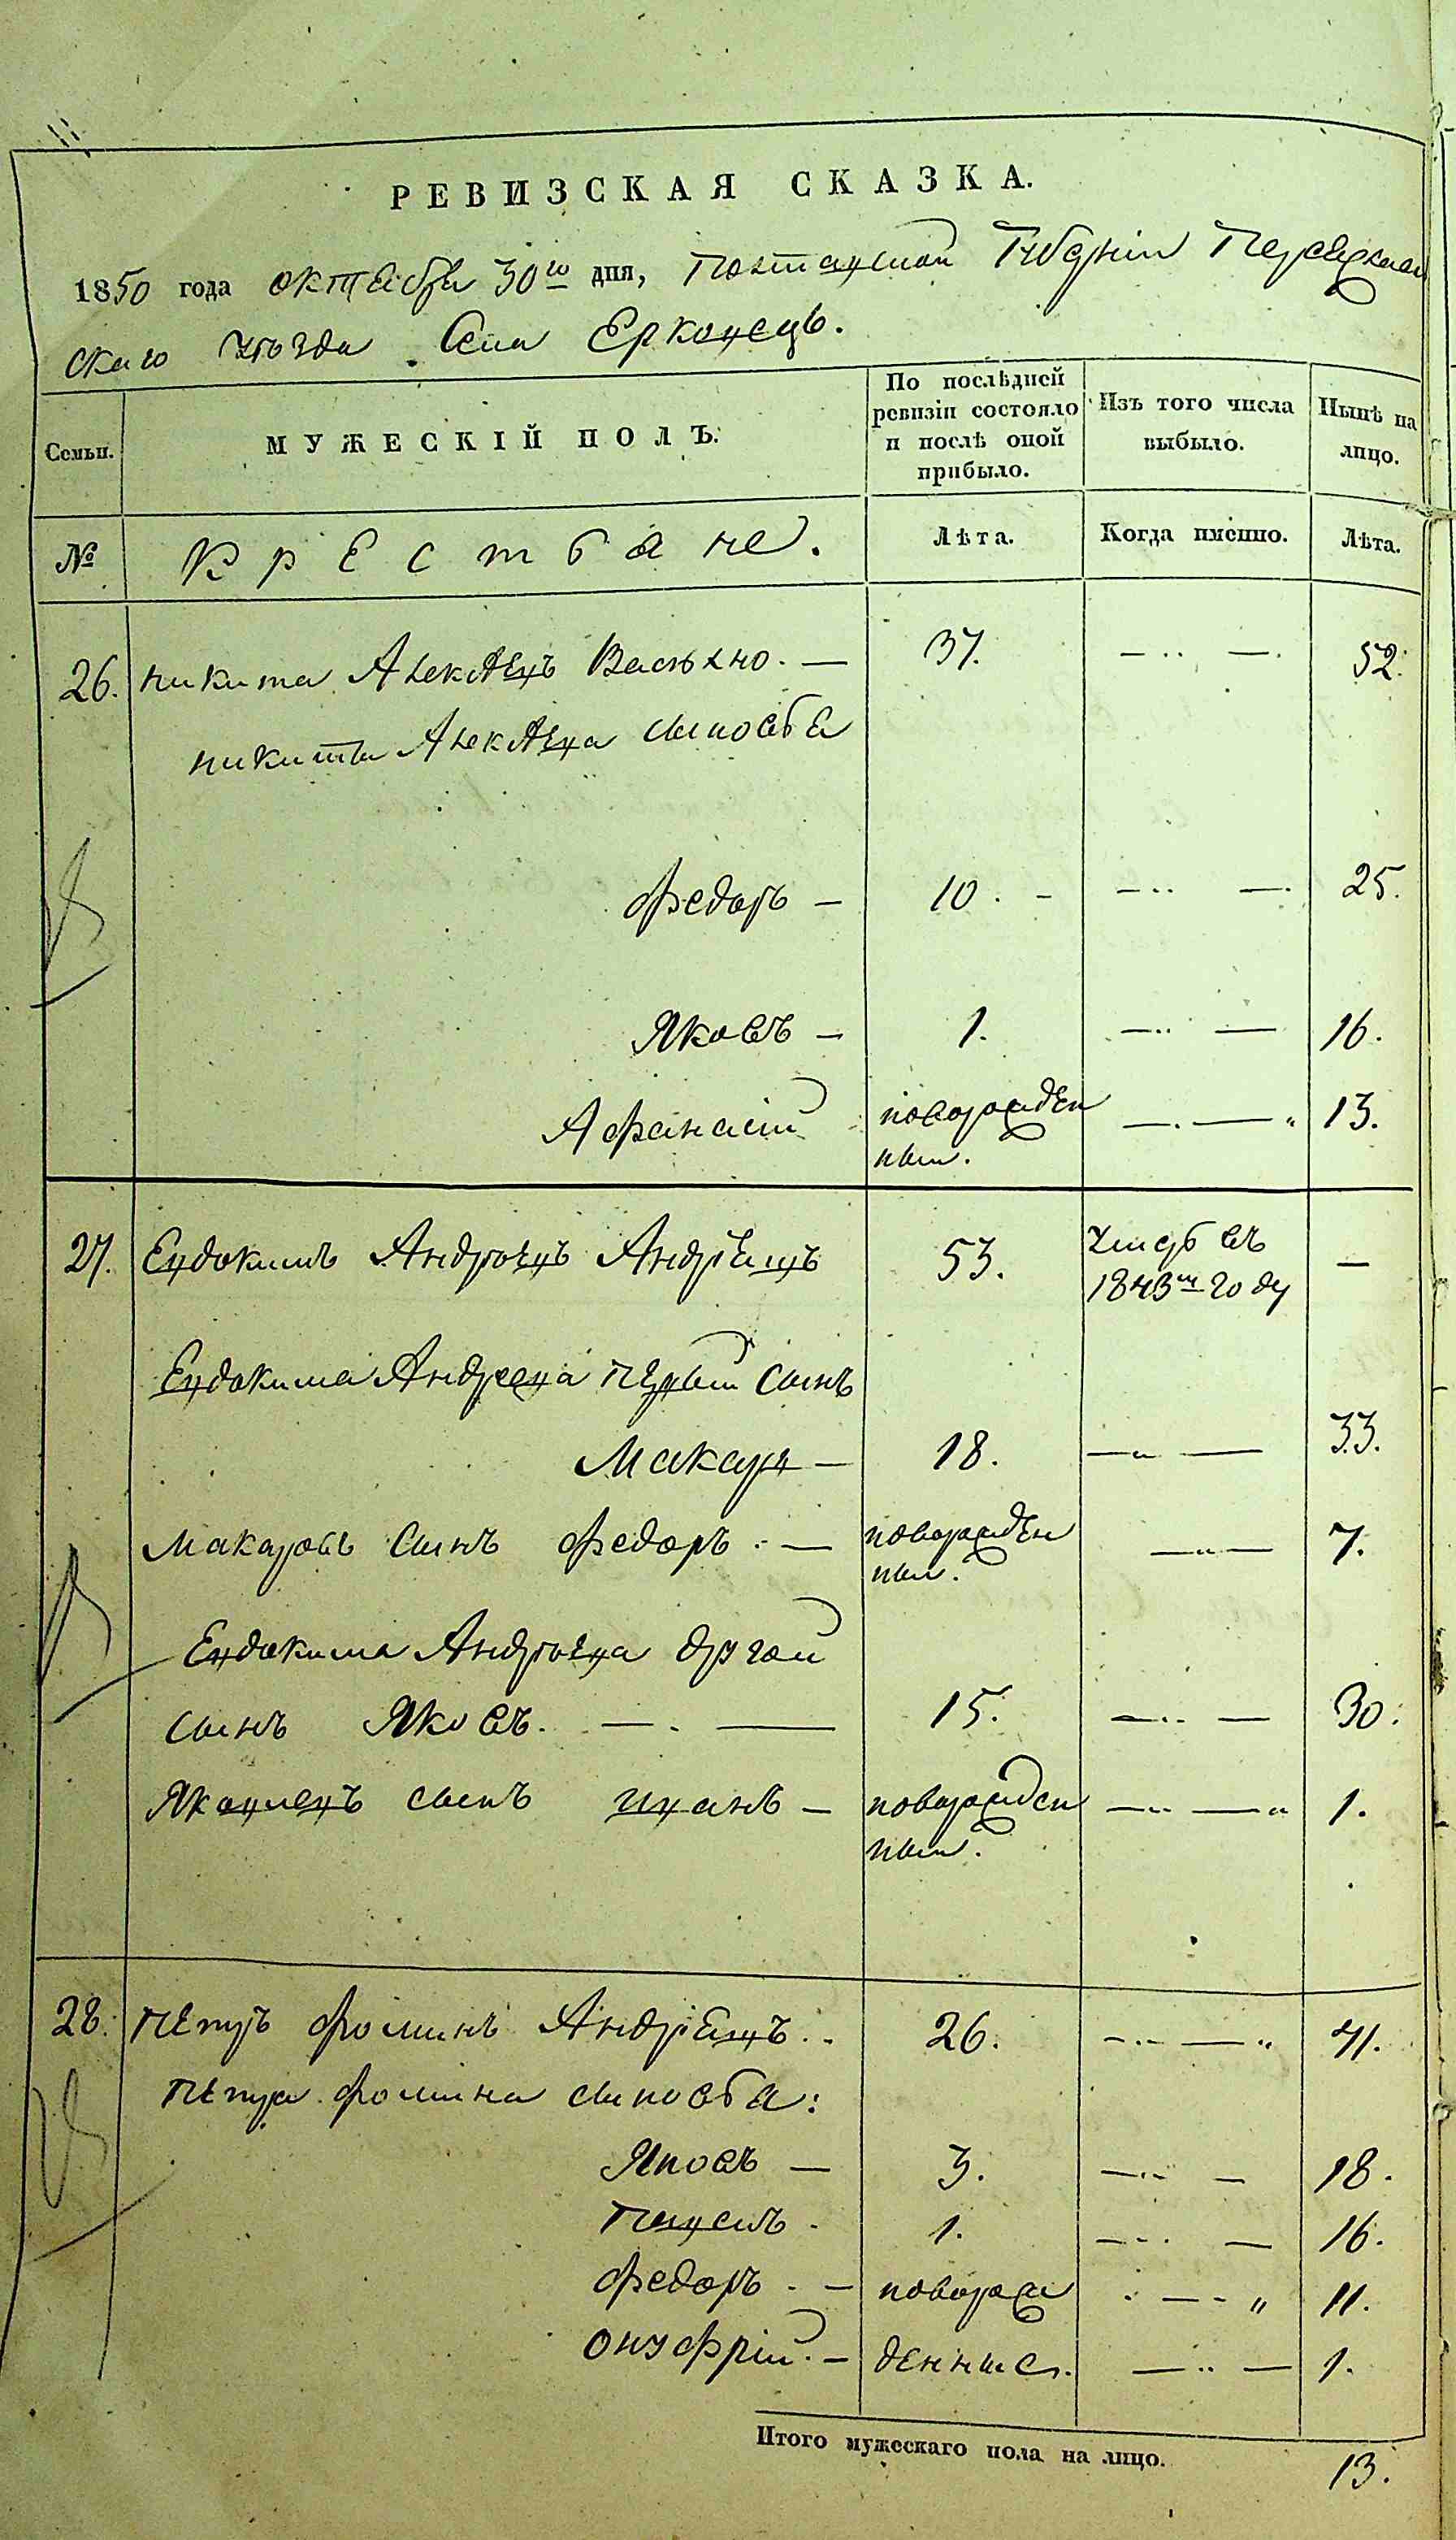 РЕВИЗСКАЯ СКАЗКА.
1850 года октября 30го дня, Полтавской Губерніи Переяслав
скаго уѣзда Села Ерковець.
Семьи.
МУЖЕСКІЙ ПОЛЪ.
По послѣдней
ревизіи состояло
и послѣ оной
прибыло.
Изъ того числа
выбыло.
Нынѣ на
лицо.
№
Крестьяне.
Лѣта.
Когда именно.
Лѣта.
26. Никита Алексѣевъ 37. 52.
Никиты Алексѣева сыновья
Федоръ — 10. 25.
Яковъ — 1. 16.
Афанасій новорожден 13.
ный.
27. Евдокимъ Андреевъ Андріецъ 53. умеръ въ —
1843м году
Евдокима Андреева первый сынъ
Макаръ — 18. 33.
Макаровъ сынъ Федоръ. — новорожден 7.
ный.
Евдокима Андреева другой
сынъ Яковъ. 15. 30.
Яковлевъ сынъ Иванъ — новорожден 1.
ный.
28. Петръ Фоминъ Андріецъ. 26. 41.
Петра Фомина сыновья:
Яковъ — 3. 18.
Павелъ. 1. 16.
Федоръ. — новорож 11.
Онуфрій. — денные. 1.
Итого мужескаго пола на лицо. 13.